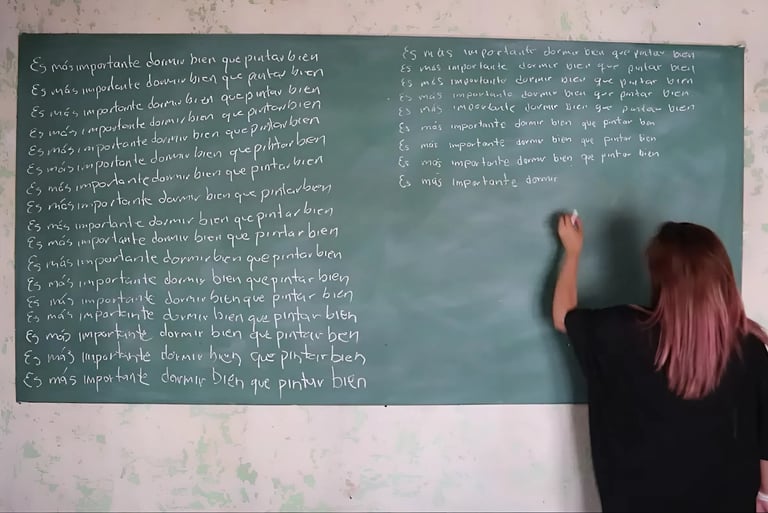 Es más importante dormir bien que pintar bien
Es más importante dormir bien que pintar bien
Es más importante dormir bien que pintar bien
Es más importante dormir bien que pintar bien
Es más importante dormir bien que pintar bien
Es más importante dormir bien que pintar bien
Es más importante dormir bien que pintar bien
Es más importante dormir bien que pintar bien
Es más importante dormir bien que pintar bien
Es más importante dormir bien que pintar bien
Es más importante dormir bien que pintar bien
Es más importante dormir bien que pintar bien
Es más importante dormir bien que pintar bien
Es más importante dormir bien que pintar bien
Es más importante dormir bien que pintar bien
Es más importante dormir bien que pintar bien
Es más importante dormir bien que pintar bien
Es más importante dormir bien que pintar bien
Es más importante dormir bien que pintar bien
Es más importante dormir bien que pintar bien
Es más importante dormir bien que pintar bien
Es más importante dormir bien que pintar bien
Es más importante dormir bien que pintar bien
Es más importante dormir bien que pintar bien
Es más importante dormir bien que pintar bien
Es más importante dormir